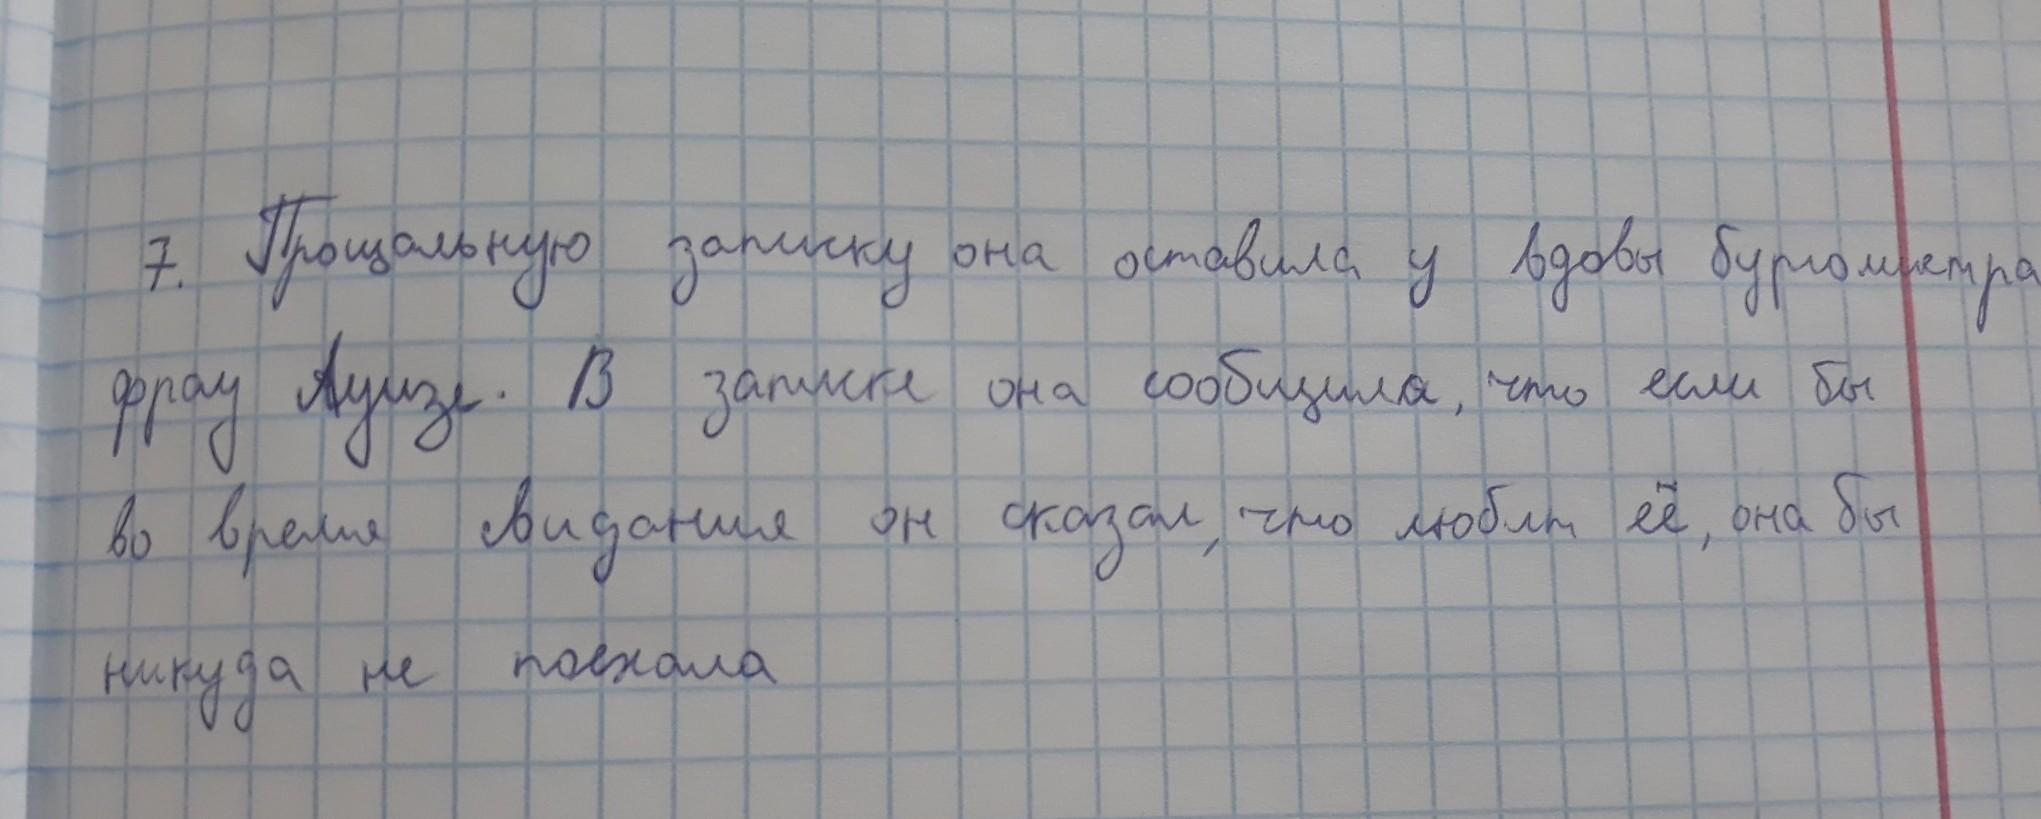 7. Прощальную записку она оставила у вдовы бургомистра
фрау Луизе. В записке она сообщила, что если бы
во время свидания он сказал, что любит её, она бы
никуда не поехала